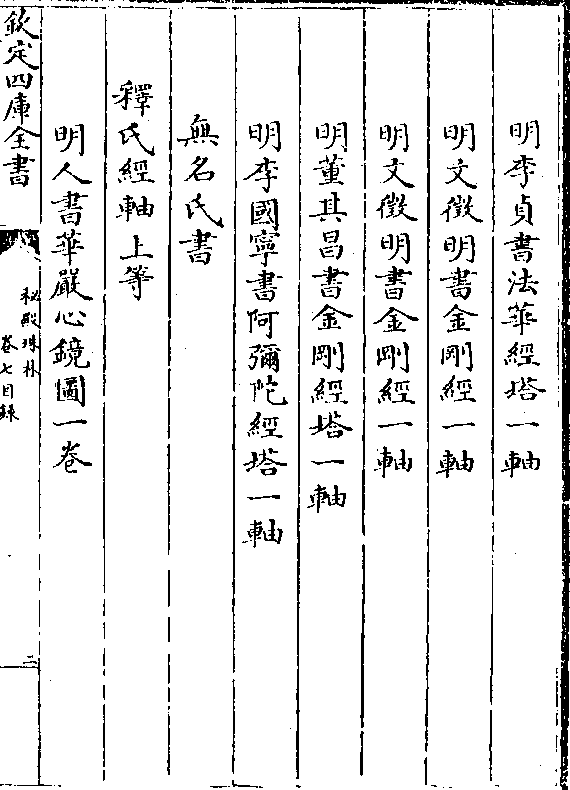 明李貞書法華經塔一軸
明文徵明書金剛經一軸
明文徵明書金剛經一軸
明董其昌書金剛經塔一軸
明李國寧書阿彌陀經塔一軸
無名氏書
釋氏經軸上等
明人書華嚴心鏡圖一卷
欽定四庫全書
秘殿珠林
卷七目錄
二